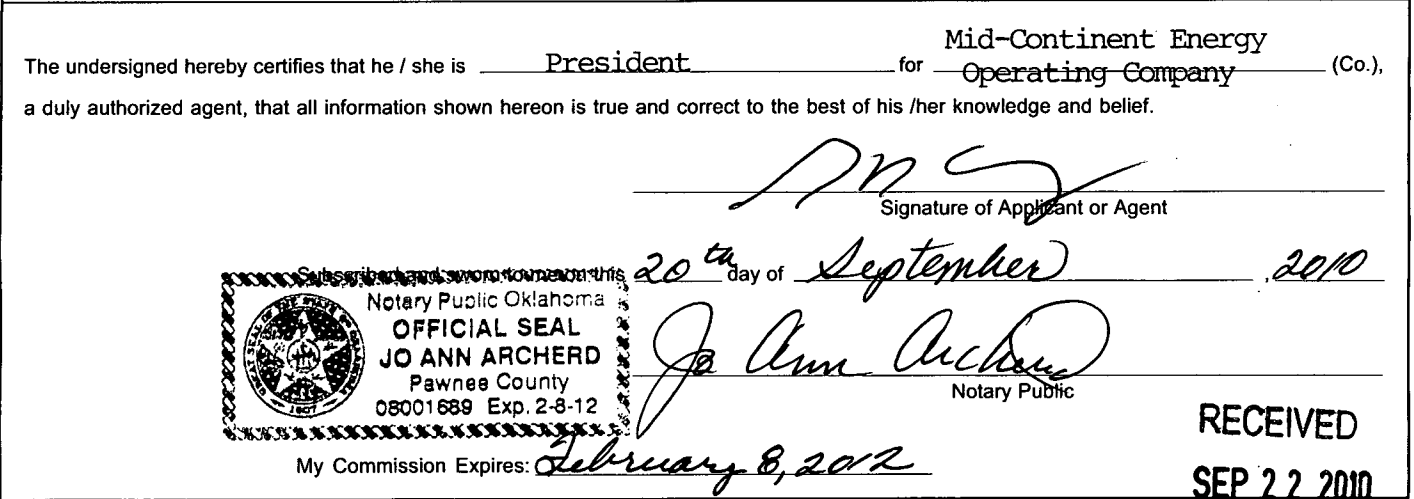 Mid-Continent Energy
The undersigned hereby certifies that he / she is President for Operating Company (Co.),
a duly authorized agent, that all information shown hereon is true and correct to the best of his /her knowledge and belief.
Signature of Applicant or Agent
Subscribed and sworn to me on this 20th day of September, 2010
Notary Public Oklahoma
OFFICIAL SEAL
JO ANN ARCHERD
Pawnee County
08001689 Exp. 2-8-12
1907
Jo Ann Archerd
Notary Public
My Commission Expires: February 8, 2012
RECEIVED
SEP 22 2010